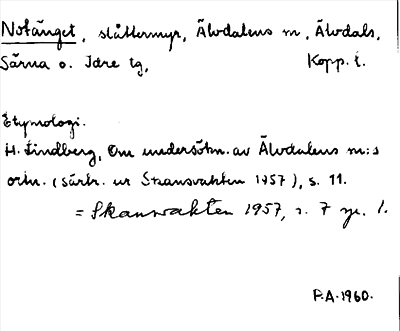 Notänget, slåttermyr, Älvdalens m, Älvdals,
Särna o. Idre tg, Kopp. l.
Etymologi.
H. Lindberg, Om undersökn. av Älvdalens m:s
ortn. (särtr. ur Skansvakten 1957), s. 11.
= Skansvakten 1957, s. 7 sp. 1.
P.A. 1960.